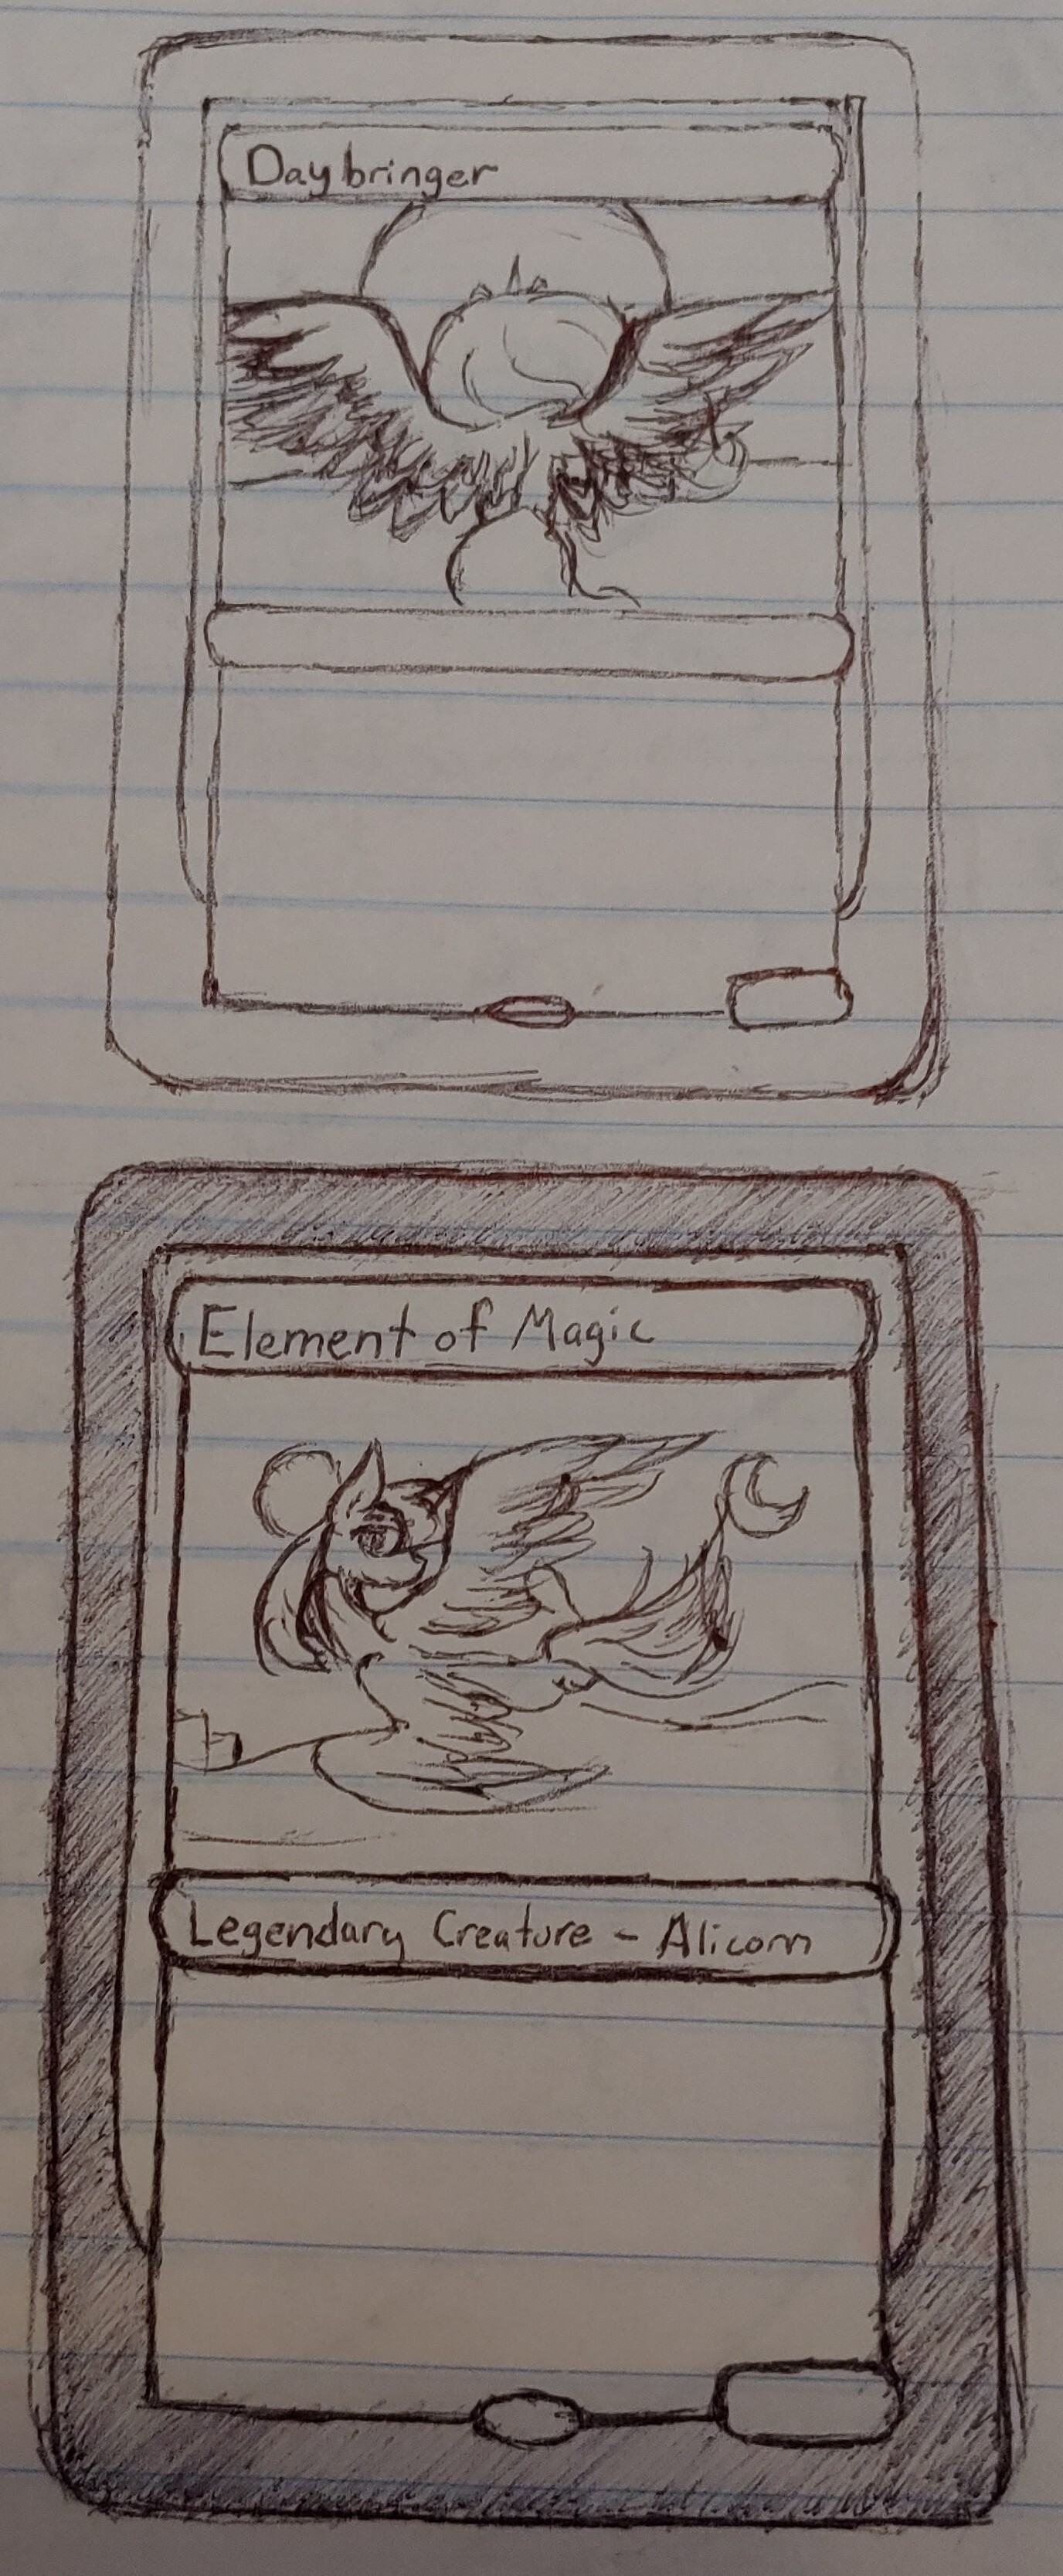 Daybringer
Element of Magic
Legendary Creature - Alicorn